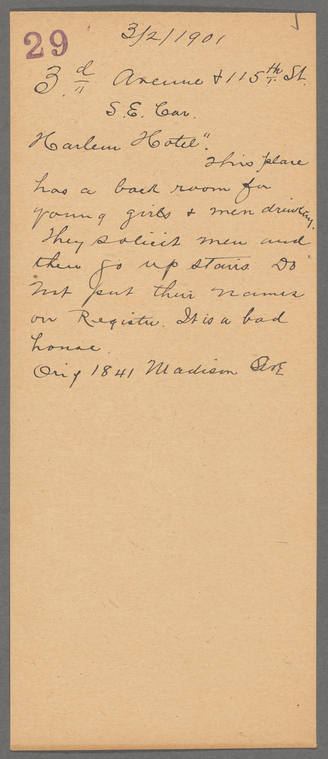 29
3/2/1901
3.d Avenue & 115th St.
S.E. Cor.
Harlem Hotel".
This place
has a back room for
young girls & men drinking.
They solicit men and
then go up stairs Do
not put their names
on Register. It is a bad
house.
Orig 1841 Madison Ave